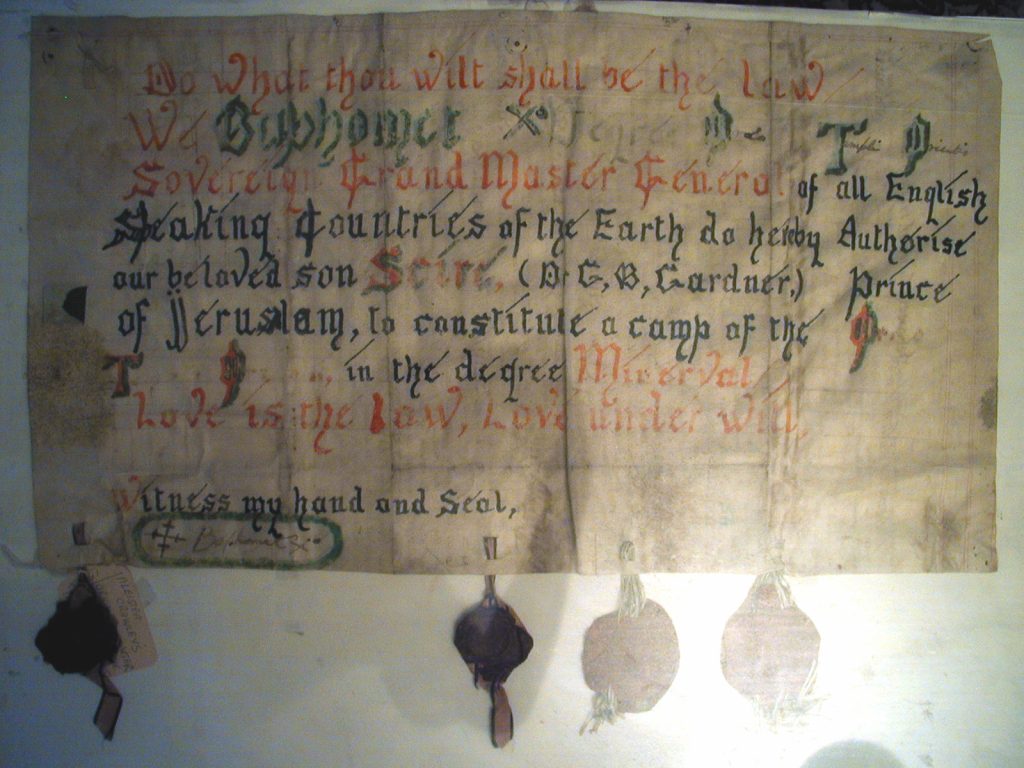 Do what thou wilt shall be the law
We Baphomet X° Degree Ordo Templi Orientis
Sovereign Grand Master General of all English
Speaking Countries of the Earth do hereby Authorise
our beloved son Scire, (Dr G, B, Gardner,) Prince
of Jeruslam, to constitute a camp of the
T O in the degree Minerval,
Love is the law, Love under will,
Witness my hand and Seal,
Baphomet X°
ALEISTER
CROWLEYS